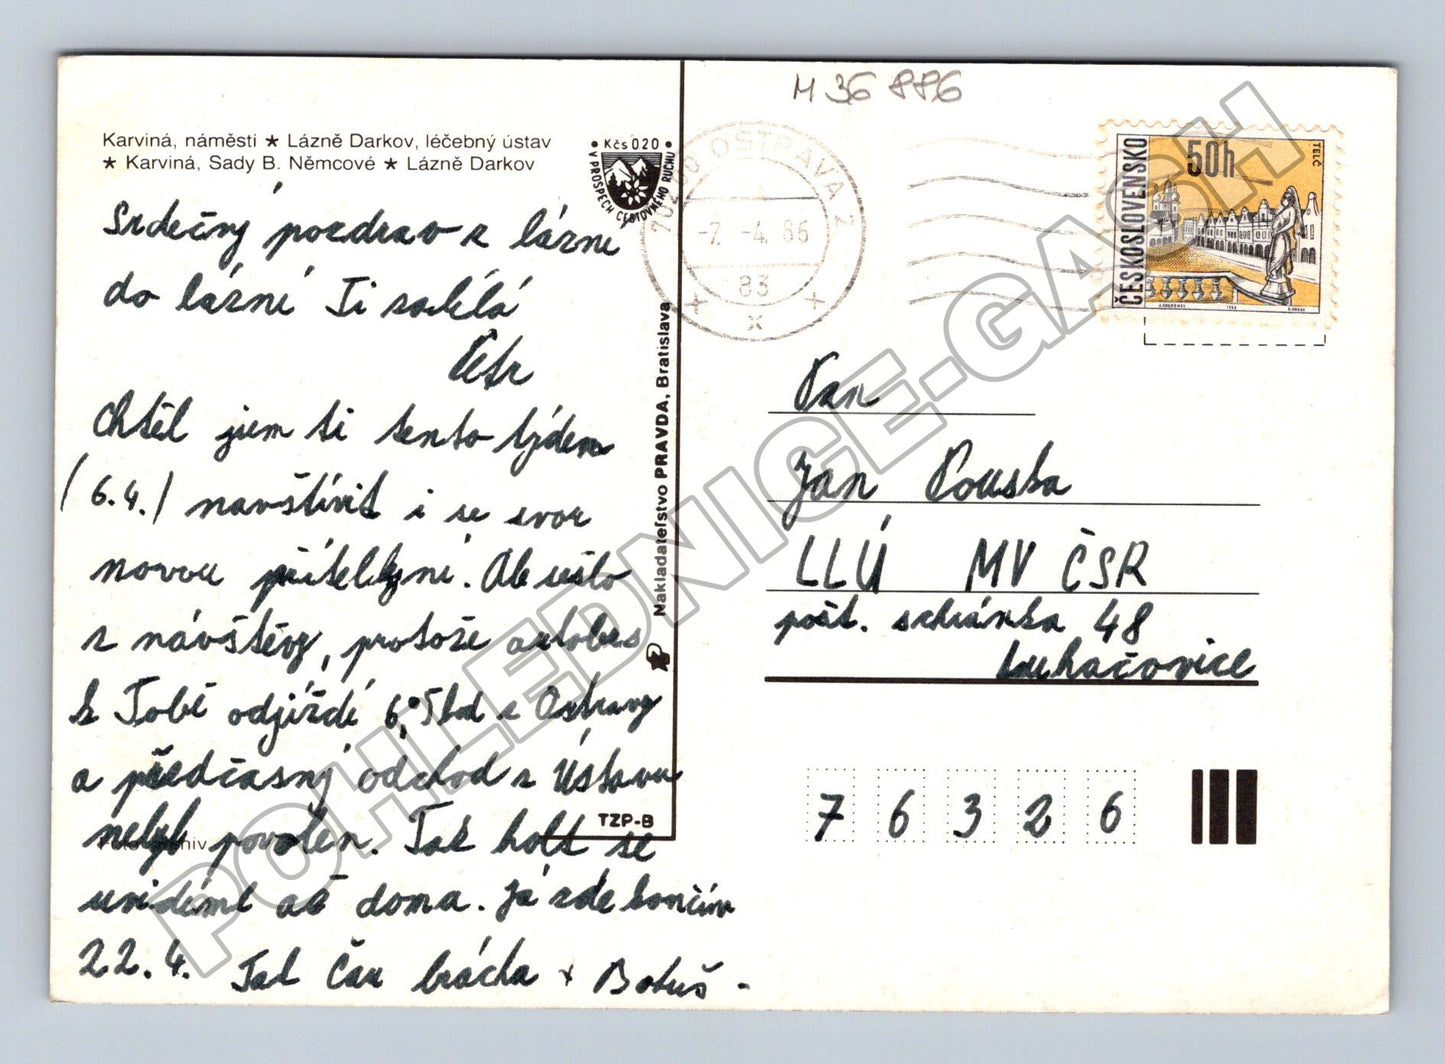 M 36 886
Karviná, náměstí ★ Lázně Darkov, léčebný ústav
★ Karviná, Sady B. Němcové ★ Lázně Darkov
Kčs 020
V PROSPĚCH CESTOVNÉHO RUCHU
Srdečný pozdrav z lázní
do lázní Ti zasílá
Petr
Chtěl jsem ti tento týden
(6.4.) navštívit i se svou
novou přítelkyní. Ale sešlo
z návštěvy, protože autobus
k Tobě odjíždí z Ostravy
a předčasný odchod z Ústavu
nebyl povolen. Tak holt se
uvidíme až doma. Já zde končím
22.4. Tak čau brácha + Bobuš.
Foto: archiv
TZP-B
Nakladateľstvo PRAVDA, Bratislava
OSTRAVA 2
-7.-4.86
83
x x x
ČESKOSLOVENSKO
50h
TELČ
Pan
Jan Pouska
LLÚ MV ČSR
pošt. schránka 48
Luhačovice
7 6 3 2 6
POHLEDNICE-GASH